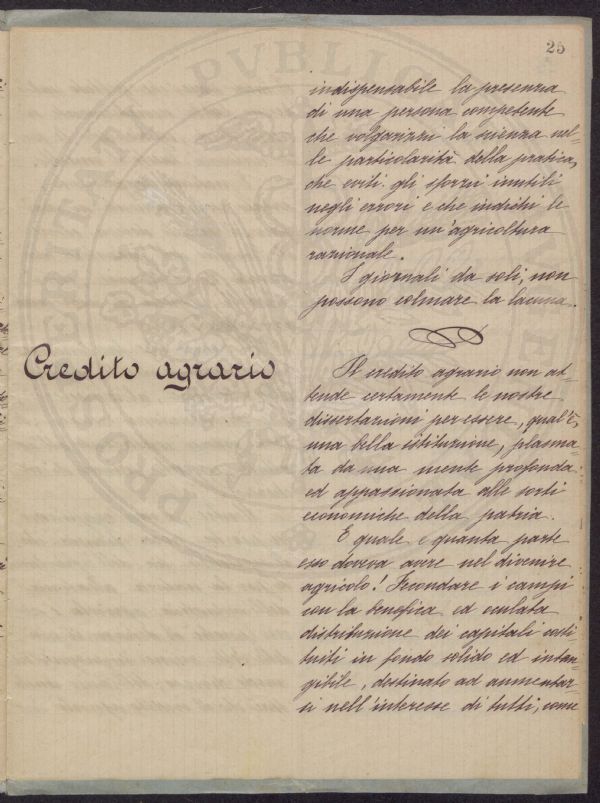 25
indispensabile la presenza
di una persona competente
che volgarizzi la scienza nel-
le particolarità della pratica,
che eviti gli sforzi inutili
negli errori e che indichi le
norme per un'agricoltura
razionale.
I giornali da soli, non
possono colmare la lacuna.
Credito agrario
Il credito agrario non at-
tende certamente le nostre
dissertazioni per essere, qual'è,
una bella istituzione, plasma-
ta da una mente profonda
ed appassionata alle sorti
economiche della patria.
E quale e quanta parte
esso doveva avere nel divenire
agricolo! Fecondare i campi
con la benefica ed oculata
distribuzione dei capitali costi
tuiti in fondo solido ed intan-
gibile, destinato ad aumentar-
si nell'interesse di tutti, come